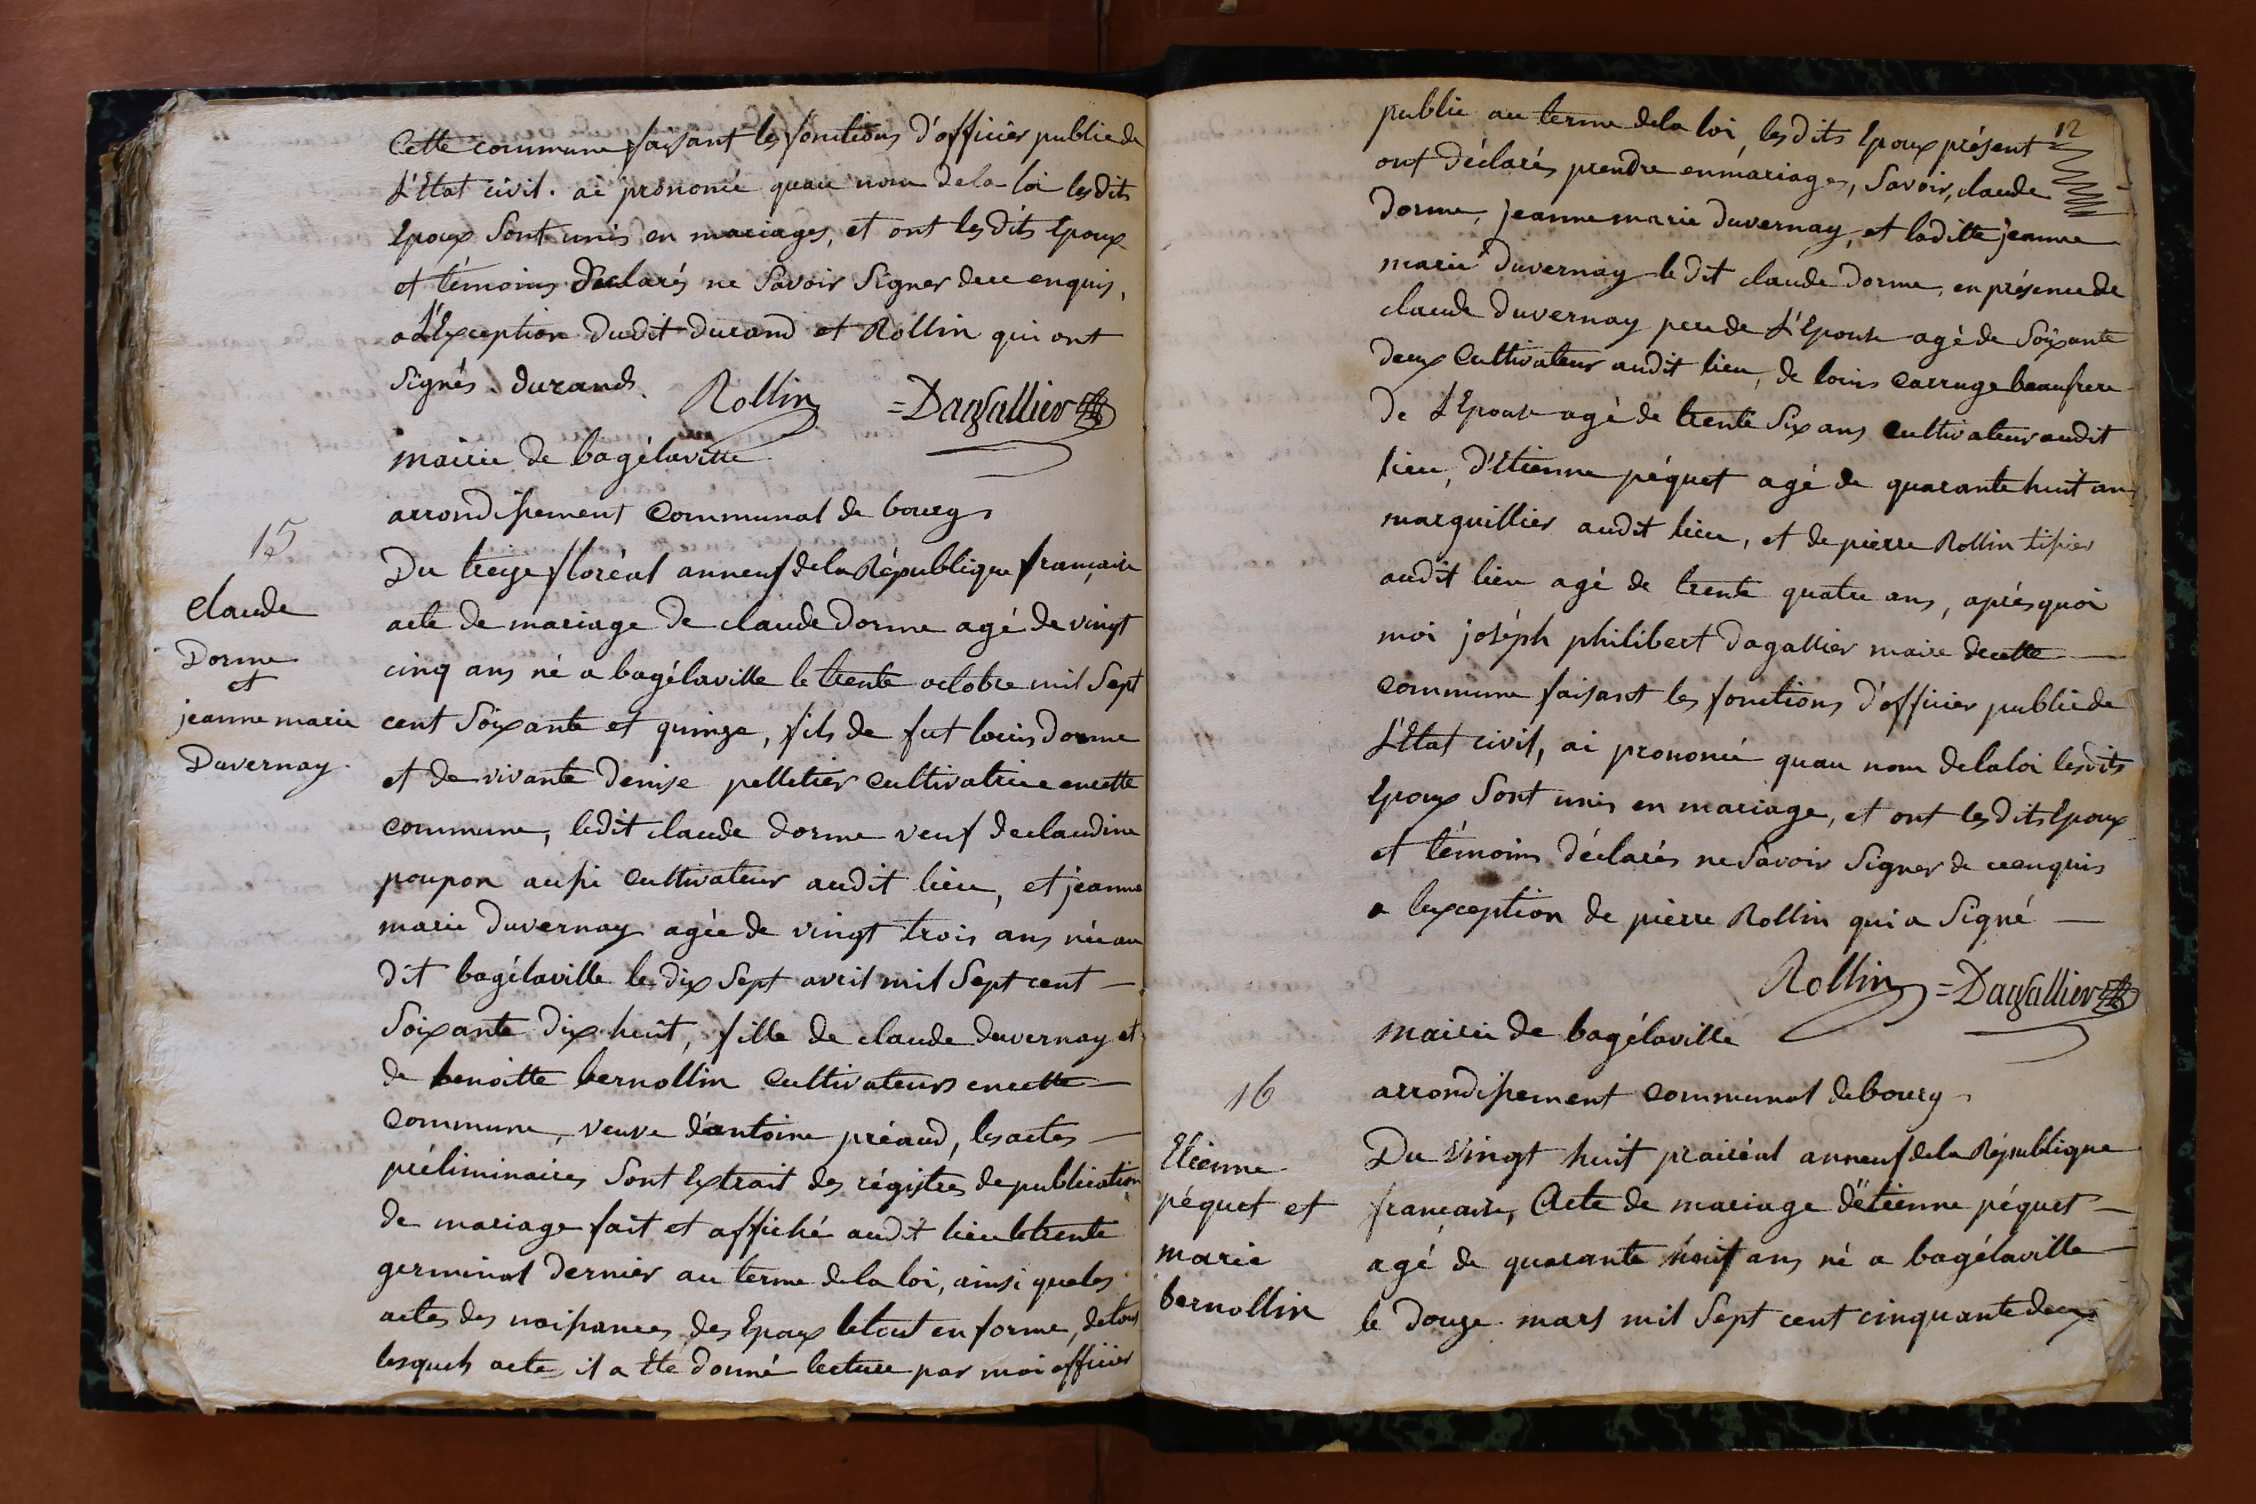 Cette commune faisant les fonctions d'officier public de
L'Etat civil. ai prononcé quau nom de la loi les dits
Epoux Sont unis en mariages, et ont les dits Epoux
et témoins déclarés ne Savoir Signer de ce enquis,
a L'Exception dudit durand et Rollin qui ont
Signés. durand. Rollin =Dagallier
mairie de bagélaville
arrondissement Communal de bourg
15
Claude
Dorme
et
jeanne marie
Duvernay.
Du treize floréal an neuf de la République française
acte de mariage de claude dorme agé de vingt
cinq ans né a bagélaville le trente octobre mil Sept
cent Soixante et quinze, fils de fut louis dorme
et de vivante denise pelletier Cultivatrice en cette
Commune, ledit claude dorme veuf de claudine
poupon aussi Cultivateur audit lieu, et jeanne
marie duvernay agée de vingt trois ans née au
dit bagélaville le dix Sept avril mil Sept cent
Soixante dix huit, fille de claude duvernay et
de benoitte bernollin Cultivateurs en cette
Commune, veuve d'antoine préaud, les actes
préliminaires Sont Extrait des régistres de publication
de mariage fait et affiché audit lieu le trente
germinal dernier au terme de la loi, ainsi que les
actes des naissances des Epoux le tout en forme, de tous
lesquels acte il a Eté donné lecture par moi officier
12
public au terme de la loi, les dits Epoux présent
ont déclarés prendre en mariages, Savoir, claude
Dorme, jeanne marie duvernay, et laditte jeanne
marie duvernay le dit claude dorme, en présence de
claude duvernay pere de L'Epouse agé de Soixante
deux Cultivateur audit lieu, de louis Carruge beaufrere
de L'Epouse agé de trente Six ans Cultivateur audit
lieu, d'Etienne péquet agé de quarante huit ans
marguillier audit lieu, et de pierre Rollin tissier
audit lieu agé de trente quatre ans, après quoi
moi joséph philibert dagallier maire de cette
Commune faisant les fonctions d'officier public de
L'Etat civil, ai prononcé quau nom de la loi les dits
Epoux Sont unis en mariage, et ont les dits Epoux
et témoins déclarés ne Savoir Signer de ce enquis
a lexception de pierre Rollin qui a Signé
Rollin =Dagallier
mairie de bagélaville
arrondissement Communal de bourg
16
Etienne
péquet et
marie
bernollin
Du Vingt huit prairéal an neuf de la République
française, Acte de mariage d'étienne péquet
agé de quarante neuf ans né a bagélaville
le douze mars mil Sept cent cinquante deux